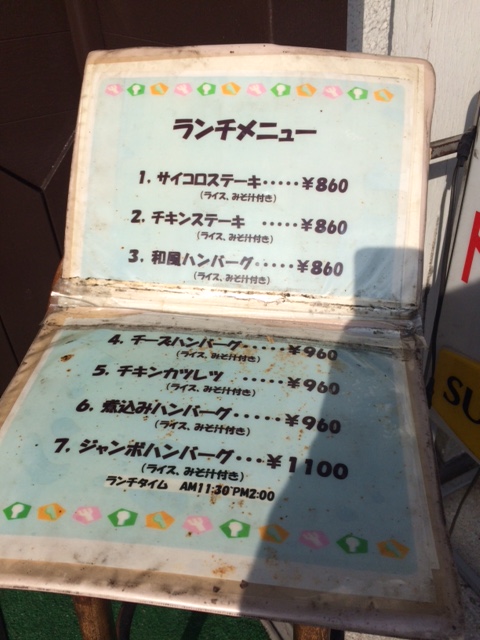 ランチメニュー
1. サイコロステーキ・・・・・¥860
(ライス、みそ汁付き)
2. チキンステーキ ・・・・・¥860
(ライス、みそ汁付き)
3. 和風ハンバーグ・・・・・¥860
(ライス、みそ汁付き)
4. チーズハンバーグ・・・・・¥960
(ライス、みそ汁付き)
5. チキンカツレツ ・・・・・¥960
(ライス、みそ汁付き)
6. 煮込みハンバーグ・・・・・¥960
(ライス、みそ汁付き)
7. ジャンボハンバーグ・・・¥1100
(ライス、みそ汁付き)
ランチタイム AM11:30~PM2:00
SU